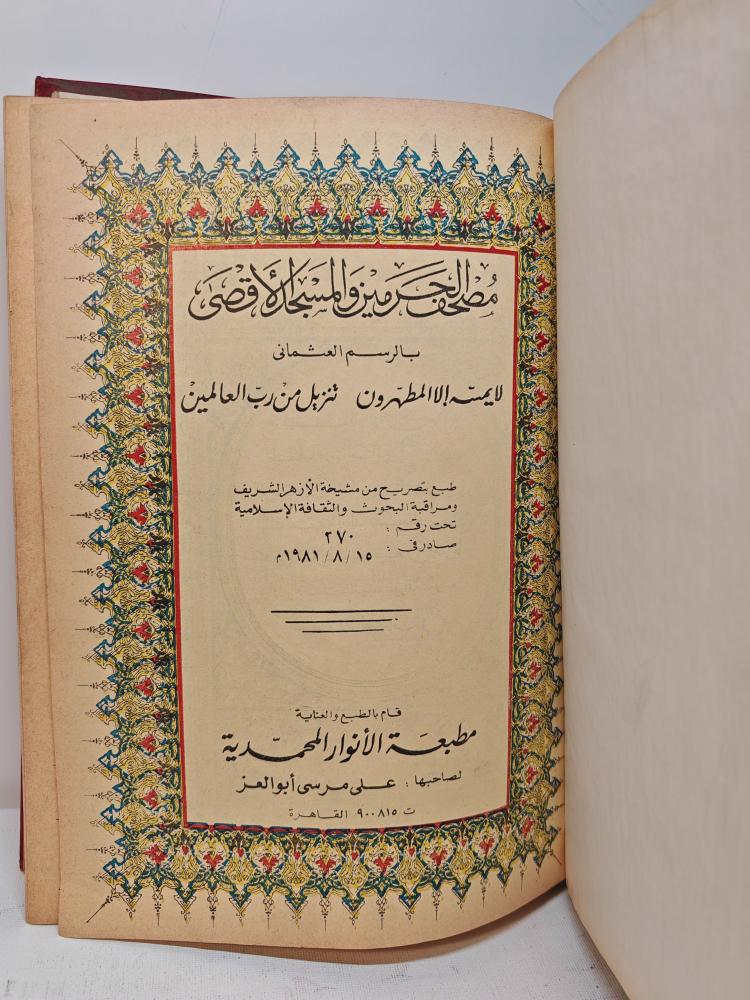 مصحف الحرمين والمسجد الأقصى
بالرسم العثمانى
لايمسه إلا المطهرون تنزيل من رب العالمين
طبع بتصريح من مشيخة الأزهر الشريف
ومراقبة البحوث والثقافة الإسلامية
تحت رقم : ٢٧٠
صادر فى : ١٥ / ٨ / ١٩٨١ م
قام بالطبع والعناية
مطبعة الأنوار المحمدية
لصاحبها : على مرسى أبو العز
ت ٩٠٠٨١٥ القاهرة